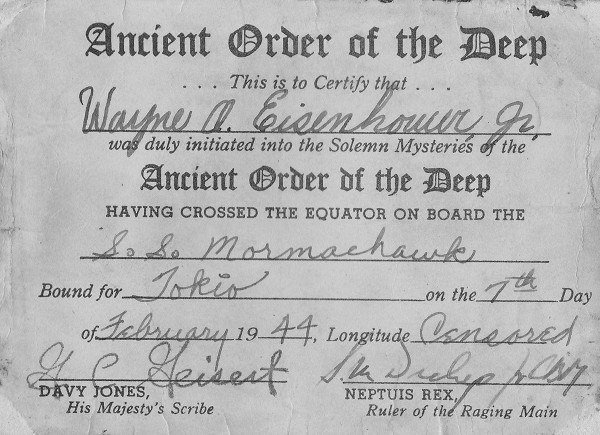 Ancient Order of the Deep
. . . This is to Certify that . . .
Wayne O. Eisenhower, Jr.
was duly initiated into the Solemn Mysteries of the
Ancient Order of the Deep
HAVING CROSSED THE EQUATOR ON BOARD THE
S. S. Mormachawk
Bound for Tokio on the 7th Day
of February 1944, Longitude Censored
G C Geisert
DAVY JONES,
His Majesty's Scribe
NEPTUIS REX,
Ruler of the Raging Main